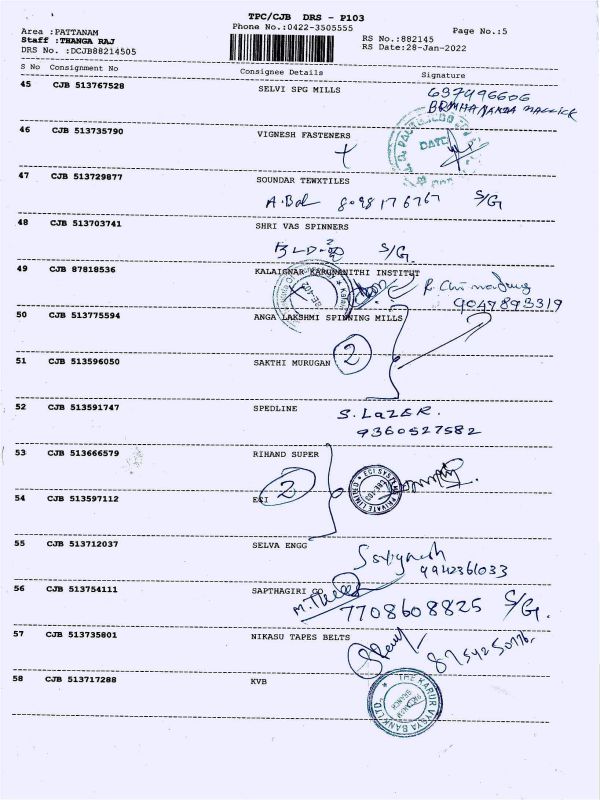 TPC/CJB DRS - P103
Phone No.:0422-3505555
Page No.:5
Area :PATTANAM
Staff :THANGA RAJ
DRS No. :DCJB88214505
RS No.:882145
RS Date:28-Jan-2022
S No Consignment No Consignee Details Signature
45 CJB 513767528 SELVI SPG MILLS
46 CJB 513735790 VIGNESH FASTENERS
DATE
47 CJB 513729877 SOUNDAR TEWXTILES
8098176767 S/G
48 CJB 513703741 SHRI VAS SPINNERS
S/G.
49 CJB 87818536 KALAIGNAR KARUNANITHI INSTITUT
9047893319
50 CJB 513775594 ANGA LAKSHMI SPINNING MILLS
2
51 CJB 513596050 SAKTHI MURUGAN
52 CJB 513591747 SPEDLINE
S. LAZER.
9360527582
53 CJB 513666579 RIHAND SUPER
2
ECI SYSTEMS PRIVATE LIMITED
54 CJB 513597112 ECI
55 CJB 513712037 SELVA ENGG
56 CJB 513754111 SAPTHAGIRI GO
7708608825 S/G.
57 CJB 513735801 NIKASU TAPES BELTS
58 CJB 513717288 KVB
THE KARUR VYSYA BANK LTD.
BRANCH